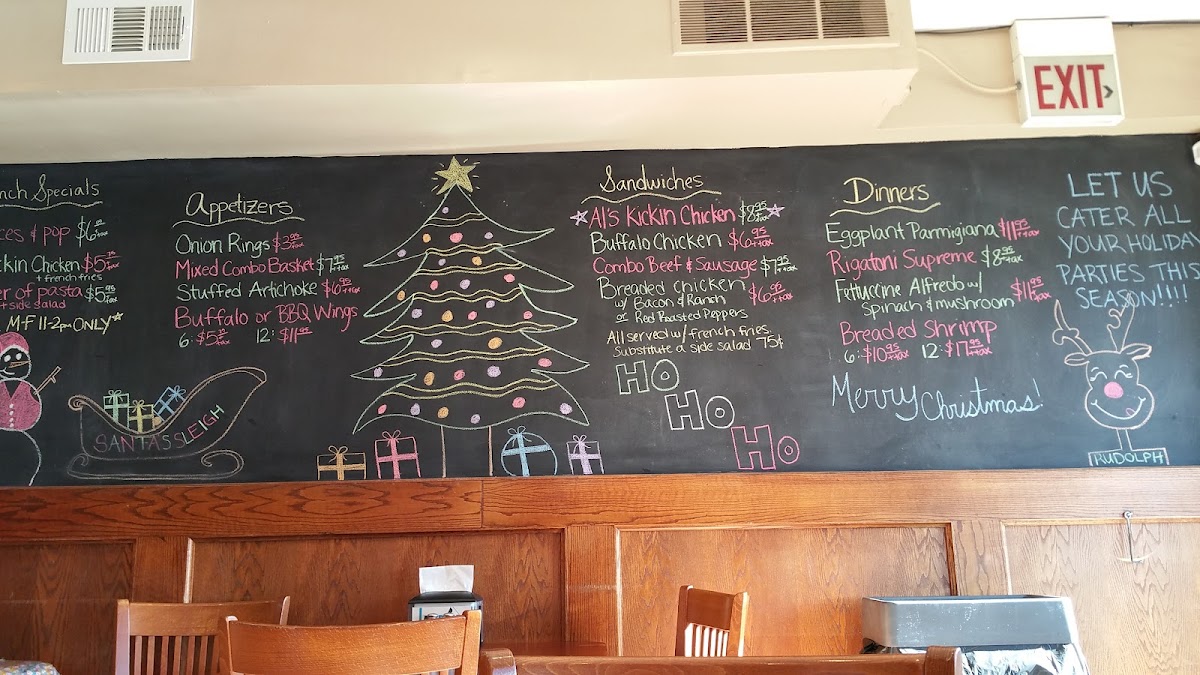 nch Specials
ces & pop $6
kin Chicken $5
+ french fries
er of pasta $5.95 +tax
+ side salad
M-F 11-2pm ONLY
Appetizers
Onion Rings $3.95 +tax
Mixed Combo Basket $7.95 +tax
Stuffed Artichoke $6.95 +tax
Buffalo or BBQ Wings
6: $5.95 +tax 12: $11.95
SANTA'S SLEIGH
Sandwiches
Al's Kickin Chicken $8.95 +tax
Buffalo Chicken $6.95 +tax
Combo Beef & Sausage $7.95 +tax
Breaded Chicken $6.95 +tax
w/ Bacon & Ranch
or Red Roasted Peppers
All served w/ french fries
Substitute a side salad 75¢
HO
HO
HO
Dinners
Eggplant Parmigiana $11.95 +tax
Rigatoni Supreme $8.95 +tax
Fettuccine Alfredo w/
Spinach & mushroom $11.95 +tax
Breaded Shrimp
6: $10.95 +tax 12: $17.95 +tax
Merry Christmas!
LET US
CATER ALL
YOUR HOLIDAY
PARTIES THIS
SEASON!!!!
RUDOLPH
EXIT